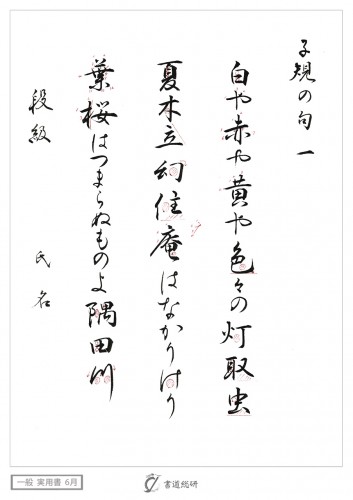 子規の句 一
白や赤や黄や色々の灯取虫
夏木立幻住庵はなかりけり
葉桜はつまらぬものよ隅田川
段級 氏名
一般 実用書 6月
書道総研